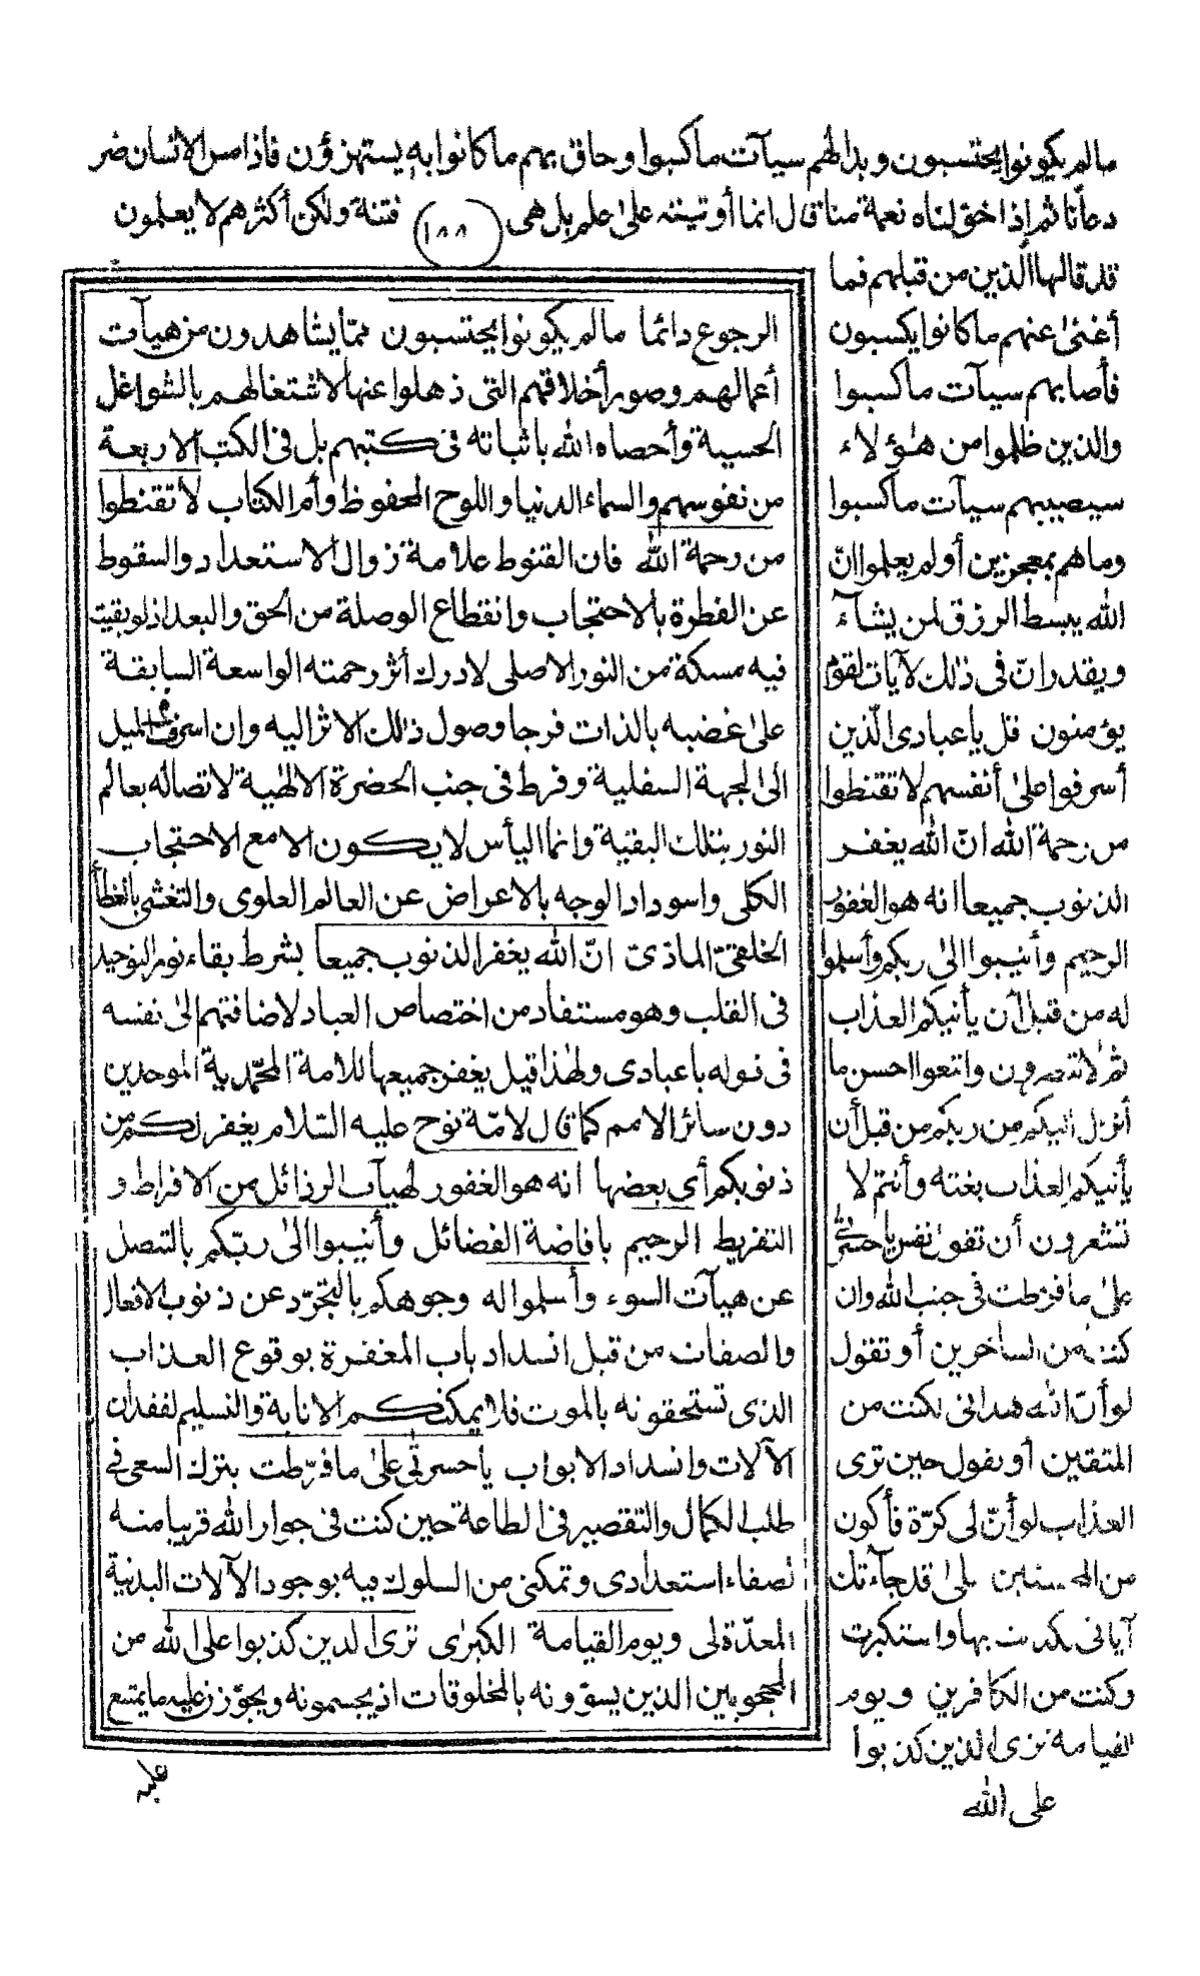 مالم يكونوا يحتسبون وبدا لهم سيآت ماكسبوا وحاق بهم ماكانوا به يستهزؤن فاذا مس الانسان ضر
دعانا ثم إذا خولناه نعمة منا قال انما أوتيته على علم بل هى (١٨٨) فتنة ولكن أكثرهم لا يعلمون
قد قالها الذين من قبلهم فما
أغنى عنهم ماكانوا يكسبون
فأصابهم سيآت ماكسبوا
والذين ظلموا من هؤلاء
سيصيبهم سيآت ماكسبوا
وماهم بمعجزين أولم يعلموا انّ
الله يبسط الرزق لمن يشآء
ويقدر انّ فى ذلك لآيات لقوم
يؤمنون قل ياعبادى الّذين
أسرفوا على أنفسهم لا تقنطوا
من رحمة الله انّ الله يغفر
الذنوب جميعا انه هو الغفور
الرحيم وأنيبوا الى ربكم وأسلموا
له من قبل أن يأتيكم العذاب
ثم لا تنصرون واتبعوا احسن ما
أنزل اليكم من ربكم من قبل أن
يأتيكم العذاب بغتة وأنتم لا
تشعرون أن تقول نفس ياحسرتى
على مافرّطت فى جنب الله وان
كنت لمن الساخرين أو تقول
لو أنّ الله هدانى لكنت من
المتقين أو تقول حين ترى
العذاب لو أنّ لى كرّة فأكون
من المحسنين بلى قد جآءتك
آياتى فكذبت بها واستكبرت
وكنت من الكافرين ويوم
القيامة ترى الذين كذبوا
على الله
الرجوع دائما مالم يكونوا يحتسبون ممّا يشاهدون من هيآت
أعمالهم وصور أخلاقهم التى ذهلوا عنها لاشتغالهم بالشواغل
الحسية وأحصاه الله باثباته فى كتبهم بل فى الكتب الاربعة
من نفوسهم والسماء الدنيا واللوح المحفوظ وأم الكتاب لا تقنطوا
من رحمة الله فان القنوط علامة زوال الاستعداد والسقوط
عن الفطرة بالاحتجاب وانقطاع الوصلة من الحق والبعد اذ لو بقيت
فيه مسكة من النور الاصلى لادرك أثر رحمته الواسعة السابقة
على غضبه بالذات فرجا وصول ذلك الاثر اليه وان اسرف فى الميل
الى الجهة السفلية وفرط فى جنب الحضرة الالهية لاتصاله بعالم
النور بتلك البقية وانما اليأس لا يكون الا مع الاحتجاب
الكلى واسوداد الوجه بالاعراض عن العالم العلوى والتغشى بالغطأ
الخلقىّ المادّىّ انّ الله يغفر الذنوب جميعا بشرط بقاء نور التوحيد
فى القلب وهو مستفاد من اختصاص العباد لاضافتهم الى نفسه
فى قوله ياعبادى ولهذا قيل يغفر جميعها للامة المحمّدية الموحدين
دون سائر الامم كما قال لامّة نوح عليه السّلام يغفر لكم من
ذنوبكم أى بعضها انه هو الغفور لهيآت الرذائل من الافراط و
التفريط الرحيم بافاضة الفضائل وأنيبوا الى ربّكم بالتنصل
عن هيآت السوء وأسلموا له وجوهكم بالتجرّد عن ذنوب الافعال
والصفات من قبل انسداد باب المغفرة بوقوع العذاب
الذى تستحقونه بالموت فلا يمكنكم الانابة والتسليم لفقدان
الآلات وانسداد الابواب ياحسرتى على مافرّطت بترك السعى فى
طلب الكمال والتقصير فى الطاعة حين كنت فى جوار الله قريبا منه
لصفاء استعدادى وتمكنى من السلوك فيه بوجود الآلات البدنية
المعدّة لى ويوم القيامة الكبرى ترى الذين كذبوا على الله من
المحجوبين الذين يسوّونه بالمخلوقات اذ يجسمونه ويجوّزون عليه ما يمتنع
عليه